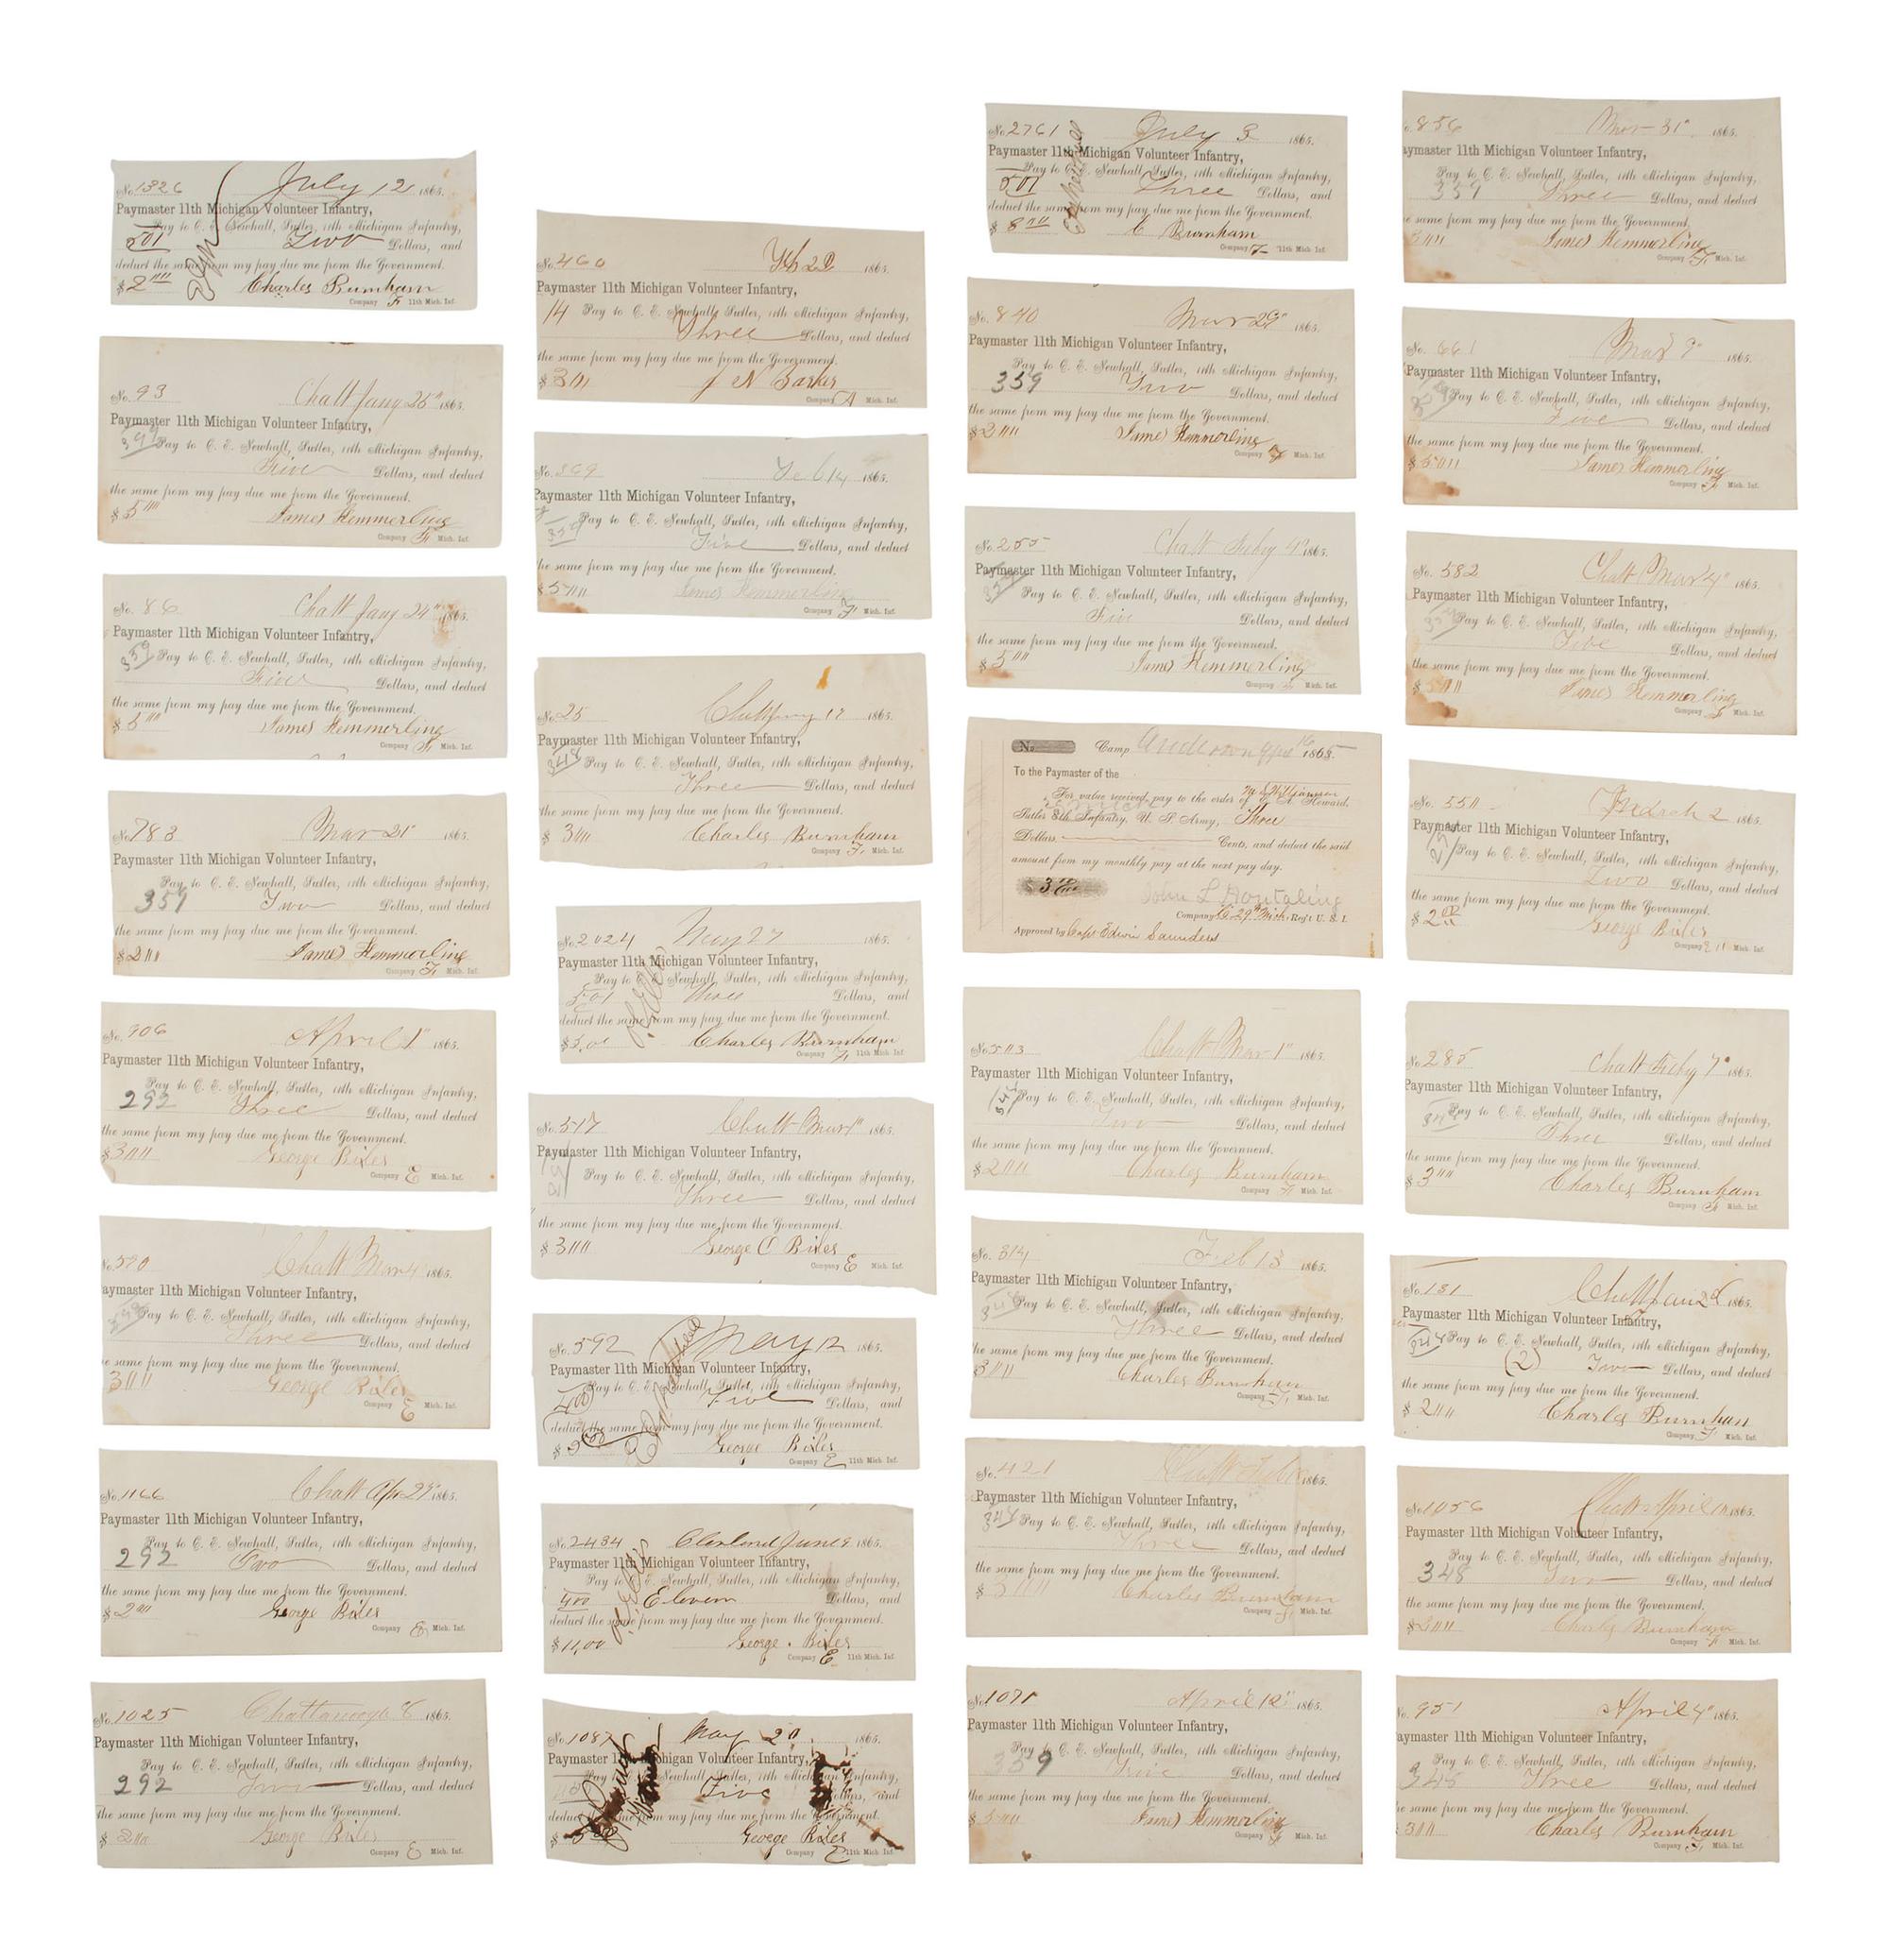 No. 1326 July 12 1865.
Paymaster 11th Michigan Volunteer Infantry,
501 Pay to C. E. Newhall, Sutler, 11th Michigan Infantry,
Two Dollars, and
deduct the same from my pay due me from the Government.
$2 Charles Burnham
Company F 11th Mich. Inf.
No. 93 Chatt Jany 25" 1865.
Paymaster 11th Michigan Volunteer Infantry,
Pay to C. E. Newhall, Sutler, 11th Michigan Infantry,
Five Dollars, and deduct
the same from my pay due me from the Government.
$5 James Hemmerling
Company F Mich. Inf.
No. 86 Chatt Jany 24" 1865.
Paymaster 11th Michigan Volunteer Infantry,
359 Pay to C. E. Newhall, Sutler, 11th Michigan Infantry,
Five Dollars, and deduct
the same from my pay due me from the Government.
$5 James Hemmerling
Company F Mich. Inf.
No. 783 Mar 21" 1865.
Paymaster 11th Michigan Volunteer Infantry,
Pay to C. E. Newhall, Sutler, 11th Michigan Infantry,
359 Two Dollars, and deduct
the same from my pay due me from the Government.
$2 James Hemmerling
Company F Mich. Inf.
No. 906 April 1" 1865.
Paymaster 11th Michigan Volunteer Infantry,
Pay to C. E. Newhall, Sutler, 11th Michigan Infantry,
292 Three Dollars, and deduct
the same from my pay due me from the Government.
$3 George Biles
Company E Mich. Inf.
No. 590 Chatt Mar 4" 1865.
aymaster 11th Michigan Volunteer Infantry,
Pay to C. E. Newhall, Sutler, 11th Michigan Infantry,
Three Dollars, and deduct
e same from my pay due me from the Government.
3 George Biles
Company E Mich. Inf.
No. 1166 Chatt Apr 29" 1865.
Paymaster 11th Michigan Volunteer Infantry,
Pay to C. E. Newhall, Sutler, 11th Michigan Infantry,
292 Two Dollars, and deduct
the same from my pay due me from the Government.
$2 George Biles
Company E Mich. Inf.
No. 1025 Chattanooga 8 1865.
Paymaster 11th Michigan Volunteer Infantry,
Pay to C. E. Newhall, Sutler, 11th Michigan Infantry,
292 Two Dollars, and deduct
the same from my pay due me from the Government.
$2 George Biles
Company E Mich. Inf.
No. 460 1865.
Paymaster 11th Michigan Volunteer Infantry,
14 Pay to C. E. Newhall, Sutler, 11th Michigan Infantry,
Three Dollars, and deduct
the same from my pay due me from the Government.
$3 J N Barker
Company A Mich. Inf.
No. 369 Feb 14 1865.
Paymaster 11th Michigan Volunteer Infantry,
359 Pay to C. E. Newhall, Sutler, 11th Michigan Infantry,
Five Dollars, and deduct
the same from my pay due me from the Government.
$5 James Hemmerling
Company F Mich. Inf.
No. 25 Chatt Jany 17 1865.
Paymaster 11th Michigan Volunteer Infantry,
348 Pay to C. E. Newhall, Sutler, 11th Michigan Infantry,
Three Dollars, and deduct
the same from my pay due me from the Government.
$3 Charles Burnham
Company F Mich. Inf.
No. 2024 May 27 1865.
Paymaster 11th Michigan Volunteer Infantry,
Pay to C. E. Newhall, Sutler, 11th Michigan Infantry,
501 Three Dollars, and
deduct the same from my pay due me from the Government.
$3.00 Charles Burnham
Company F 11th Mich. Inf.
No. 517 Chatt Mar 1" 1865.
Paymaster 11th Michigan Volunteer Infantry,
Pay to C. E. Newhall, Sutler, 11th Michigan Infantry,
Three Dollars, and deduct
the same from my pay due me from the Government.
$3 George C Biles
Company E Mich. Inf.
No. 592 May 12 1865.
Paymaster 11th Michigan Volunteer Infantry,
Pay to C. E. Newhall, Sutler, 11th Michigan Infantry,
400 Five Dollars, and
deduct the same from my pay due me from the Government.
George Biles
Company E 11th Mich. Inf.
No. 2434 Cleveland June 9 1865.
Paymaster 11th Michigan Volunteer Infantry,
Pay to C. E. Newhall, Sutler, 11th Michigan Infantry,
400 Elevern Dollars, and
deduct the same from my pay due me from the Government.
$11,00 George Biles
Company E 11th Mich. Inf.
No. 1087 May 20 1865.
Paymaster 11th Michigan Volunteer Infantry,
Pay to C. E. Newhall, Sutler, 11th Michigan Infantry,
Five Dollars, and
deduct the same from my pay due me from the Government.
$5 George Biles
Company E 11th Mich. Inf.
No. 2761 July 3 1865.
Paymaster 11th Michigan Volunteer Infantry,
Pay to C. E. Newhall, Sutler, 11th Michigan Infantry,
501 Three Dollars, and
deduct the same from my pay due me from the Government.
$ C Burnham
Company F 11th Mich. Inf.
No. 840 Mar 29" 1865.
Paymaster 11th Michigan Volunteer Infantry,
Pay to C. E. Newhall, Sutler, 11th Michigan Infantry,
359 Two Dollars, and deduct
the same from my pay due me from the Government.
$2 James Hemmerling
Company F Mich. Inf.
No. 255 Chatt Feby 4" 1865.
Paymaster 11th Michigan Volunteer Infantry,
Pay to C. E. Newhall, Sutler, 11th Michigan Infantry,
Five Dollars, and deduct
the same from my pay due me from the Government.
$5 James Hemmerling
Company Mich. Inf.
No. Camp Anderson 1865.
To the Paymaster of the
For value received, pay to the order of C. A. Howard,
Sutler 8th Infantry, U. S. Army, Three
Dollars Cents, and deduct the said
amount from my monthly pay at the next pay day.
$3 John L Houtaling
Company 29th Mich. Reg't U. S. I.
Approved by Capt Edwin Saunders
No. 503 Chatt Mar 1" 1865.
Paymaster 11th Michigan Volunteer Infantry,
Pay to C. E. Newhall, Sutler, 11th Michigan Infantry,
Two Dollars, and deduct
the same from my pay due me from the Government.
$2 Charles Burnham
Company F Mich. Inf.
No. 314 Feb 13 1865.
Paymaster 11th Michigan Volunteer Infantry,
Pay to C. E. Newhall, Sutler, 11th Michigan Infantry,
Three Dollars, and deduct
the same from my pay due me from the Government.
$3 Charles Burnham
Company F Mich. Inf.
No. 421 Chatt Feb 1865.
Paymaster 11th Michigan Volunteer Infantry,
348 Pay to C. E. Newhall, Sutler, 11th Michigan Infantry,
Three Dollars, and deduct
the same from my pay due me from the Government.
$3 Charles Burnham
Company F Mich. Inf.
No. 1071 April 12" 1865.
Paymaster 11th Michigan Volunteer Infantry,
Pay to C. E. Newhall, Sutler, 11th Michigan Infantry,
359 Five Dollars, and deduct
the same from my pay due me from the Government.
$5 James Hemmerling
Company F Mich. Inf.
856 Mar 31" 1865.
aymaster 11th Michigan Volunteer Infantry,
Pay to C. E. Newhall, Sutler, 11th Michigan Infantry,
359 Three Dollars, and deduct
e same from my pay due me from the Government.
James Hemmerling
Company F Mich. Inf.
No. 661 Mar 9" 1865.
Paymaster 11th Michigan Volunteer Infantry,
Pay to C. E. Newhall, Sutler, 11th Michigan Infantry,
Five Dollars, and deduct
the same from my pay due me from the Government.
$5 James Hemmerling
Company F Mich. Inf.
No. 582 Chatt Mar 4" 1865.
Paymaster 11th Michigan Volunteer Infantry,
Pay to C. E. Newhall, Sutler, 11th Michigan Infantry,
Five Dollars, and deduct
the same from my pay due me from the Government.
$5 James Hemmerling
Company F Mich. Inf.
No. 550 March 2 1865.
Paymaster 11th Michigan Volunteer Infantry,
Pay to C. E. Newhall, Sutler, 11th Michigan Infantry,
Two Dollars, and deduct
the same from my pay due me from the Government.
$2 George Biles
Company E 11 Mich. Inf.
No. 285 Chatt Feby 7" 1865.
Paymaster 11th Michigan Volunteer Infantry,
Pay to C. E. Newhall, Sutler, 11th Michigan Infantry,
Three Dollars, and deduct
the same from my pay due me from the Government.
$3 Charles Burnham
Company F Mich. Inf.
No. 131 Chatt Jan 1865.
Paymaster 11th Michigan Volunteer Infantry,
Pay to C. E. Newhall, Sutler, 11th Michigan Infantry,
(2) Two Dollars, and deduct
the same from my pay due me from the Government.
$2 Charles Burnham
Company F Mich. Inf.
No. 1056 Chatt April 1865.
Paymaster 11th Michigan Volunteer Infantry,
Pay to C. E. Newhall, Sutler, 11th Michigan Infantry,
348 Two Dollars, and deduct
the same from my pay due me from the Government.
$2 Charles Burnham
Company F Mich. Inf.
No. 951 April 4" 1865.
aymaster 11th Michigan Volunteer Infantry,
Pay to C. E. Newhall, Sutler, 11th Michigan Infantry,
Three Dollars, and deduct
e same from my pay due me from the Government.
3 Charles Burnham
Company F Mich. Inf.